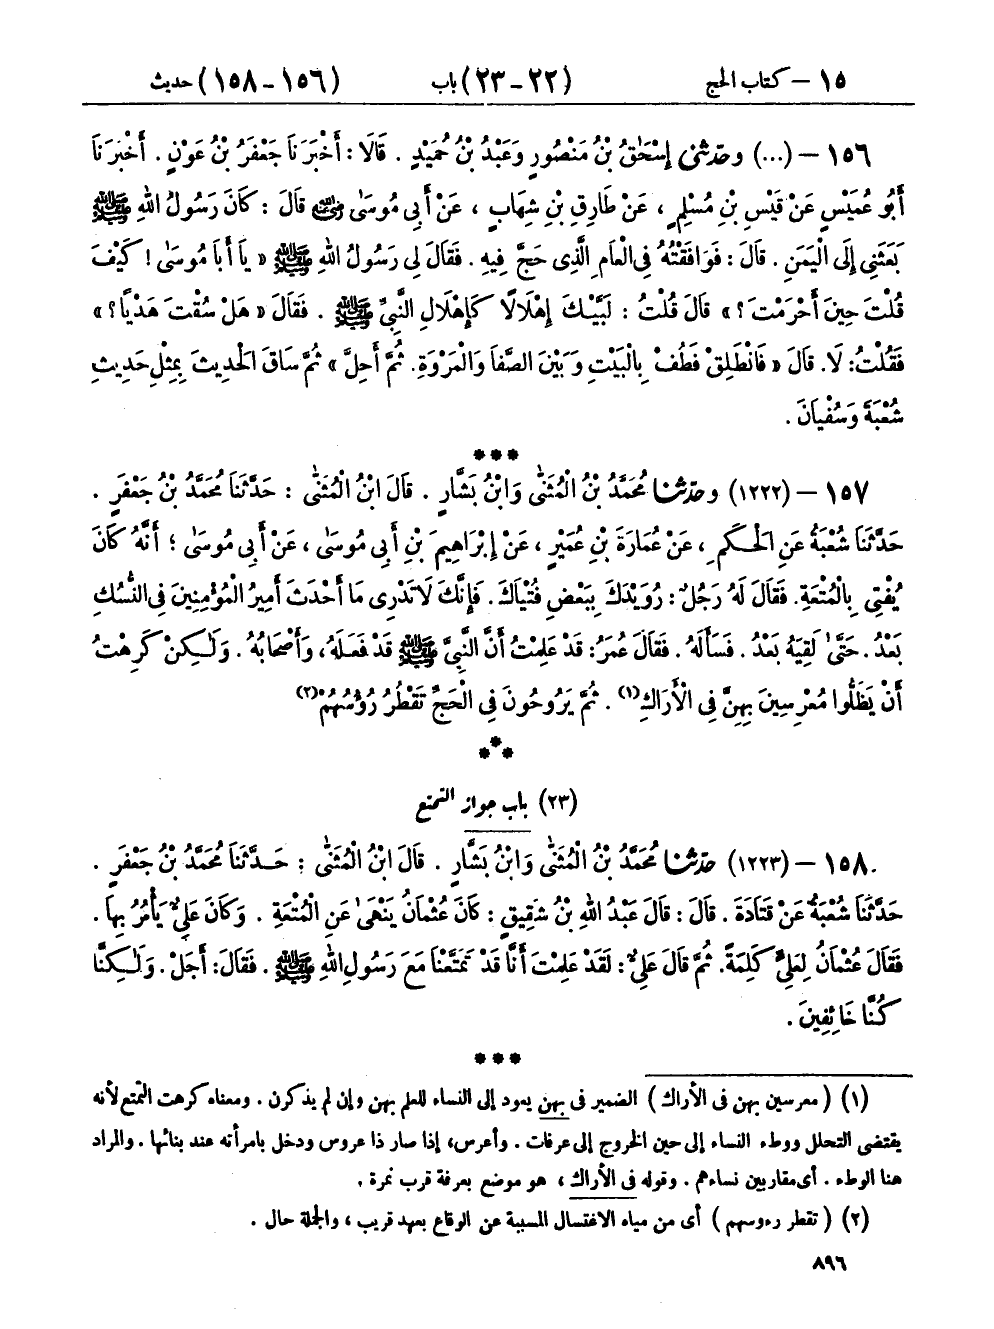 ١٥ – كتاب الحج (٢٢ – ٢٣) باب (١٥٦ – ١٥٨) حديث
١٥٦ – (...) وحَدَّثَنِي إِسْحَٰقُ بْنُ مَنْصُورٍ وَعَبْدُ بْنُ حُمَيْدٍ . قَالَا : أَخْبَرَنَا جَعْفَرُ بْنُ عَوْنٍ . أَخْبَرَنَا
أَبُو عُمَيْسٍ عَنْ قَيْسِ بْنِ مُسْلِمٍ ، عَنْ طَارِقِ بْنِ شِهَابٍ ، عَنْ أَبِي مُوسَىٰ رضي الله عنه قَالَ : كَانَ رَسُولُ اللهِ ﷺ
بَعَثَنِي إِلَى الْيَمَنِ . قَالَ : فَوَافَقْتُهُ فِي الْعَامِ الَّذِي حَجَّ فِيهِ . فَقَالَ لِي رَسُولُ اللهِ ﷺ « يَا أَبَا مُوسَىٰ ! كَيْفَ
قُلْتَ حِينَ أَحْرَمْتَ ؟ » قَالَ قُلْتُ : لَبَّيْكَ إِهْلَالًا كَإِهْلَالِ النَّبِيِّ ﷺ . فَقَالَ « هَلْ سُقْتَ هَدْيًا ؟ »
فَقُلْتُ : لَا . قَالَ « فَانْطَلِقْ فَطُفْ بِالْبَيْتِ وَبَيْنَ الصَّفَا وَالْمَرْوَةِ . ثُمَّ أَحِلَّ » ثُمَّ سَاقَ الْحَدِيثَ بِمِثْلِ حَدِيثِ
شُعْبَةَ وَسُفْيَانَ .
***
١٥٧ – (١٢٢٢) وحَدَّثَنَا مُحَمَّدُ بْنُ الْمُثَنَّىٰ وَابْنُ بَشَّارٍ . قَالَ ابْنُ الْمُثَنَّىٰ : حَدَّثَنَا مُحَمَّدُ بْنُ جَعْفَرٍ .
حَدَّثَنَا شُعْبَةُ عَنِ الْحَكَمِ ، عَنْ عُمَارَةَ بْنِ عُمَيْرٍ ، عَنْ إِبْرَاهِيمَ بْنِ أَبِي مُوسَىٰ ، عَنْ أَبِي مُوسَىٰ ؛ أَنَّهُ كَانَ
يُفْتِي بِالْمُتْعَةِ . فَقَالَ لَهُ رَجُلٌ : رُوَيْدَكَ بِبَعْضِ فُتْيَاكَ . فَإِنَّكَ لَا تَدْرِي مَا أَحْدَثَ أَمِيرُ الْمُؤْمِنِينَ فِي النُّسُكِ
بَعْدُ . حَتَّىٰ لَقِيَهُ بَعْدُ . فَسَأَلَهُ . فَقَالَ عُمَرُ : قَدْ عَلِمْتُ أَنَّ النَّبِيَّ ﷺ قَدْ فَعَلَهُ ، وَأَصْحَابُهُ . وَلَٰكِنْ كَرِهْتُ
أَنْ يَظَلُّوا مُعْرِسِينَ بِهِنَّ فِي الْأَرَاكِ(١) . ثُمَّ يَرُوحُونَ فِي الْحَجِّ تَقْطُرُ رُؤُسُهُمْ(٢)
***
(٢٣) باب جواز التمتع
١٥٨ – (١٢٢٣) حَدَّثَنَا مُحَمَّدُ بْنُ الْمُثَنَّىٰ وَابْنُ بَشَّارٍ . قَالَ ابْنُ الْمُثَنَّىٰ : حَدَّثَنَا مُحَمَّدُ بْنُ جَعْفَرٍ .
حَدَّثَنَا شُعْبَةُ عَنْ قَتَادَةَ . قَالَ : قَالَ عَبْدُ اللهِ بْنُ شَقِيقٍ : كَانَ عُثْمَانُ يَنْهَىٰ عَنِ الْمُتْعَةِ . وَكَانَ عَلِيٌّ يَأْمُرُ بِهَا .
فَقَالَ عُثْمَانُ لِعَلِيٍّ كَلِمَةً . ثُمَّ قَالَ عَلِيٌّ : لَقَدْ عَلِمْتَ أَنَّا قَدْ تَمَتَّعْنَا مَعَ رَسُولِ اللهِ ﷺ . فَقَالَ : أَجَلْ . وَلَٰكِنَّا
كُنَّا خَائِفِينَ .
***
(١) ( معرسين بهن في الأراك ) الضمير في بهن يعود إلى النساء للعلم بهن وإن لم يذكرن . ومعناه كرهت التمتع لأنه
يقتضى التحلل ووطء النساء إلى حين الخروج إلى عرفات . وأعرس، إذا صار ذا عروس ودخل بامرأته عند بنائها . والمراد
هنا الوطء . أى مقاربين نساءهم . وقوله في الأراك ، هو موضع بعرفة قرب نمرة .
(٢) ( تقطر رءوسهم ) أى من مياه الاغتسال المسببة عن الوقاع بعهد قريب ، والجملة حال .
٨٩٦